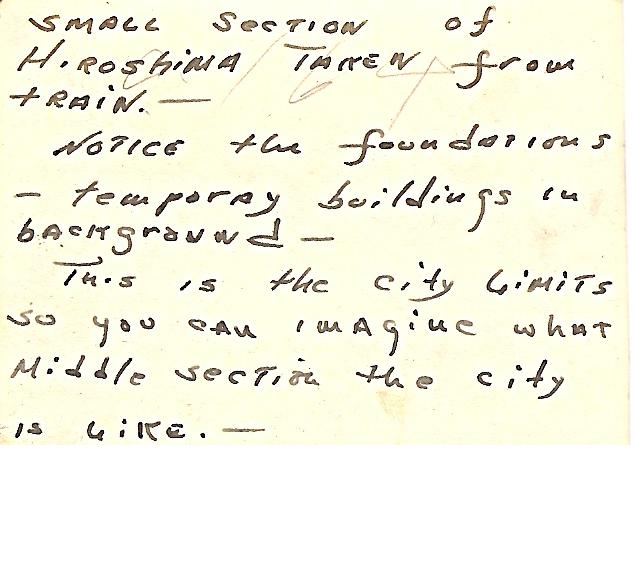 SMALL SECTION of
HIROSHIMA TAKEN from
tRAiN. —
NOTICE the foundations
— temporay buildings in
bACKground —
This is the city LiMiTS
so you CAN imAgine whAT
Middle section the city
is LiKE. —